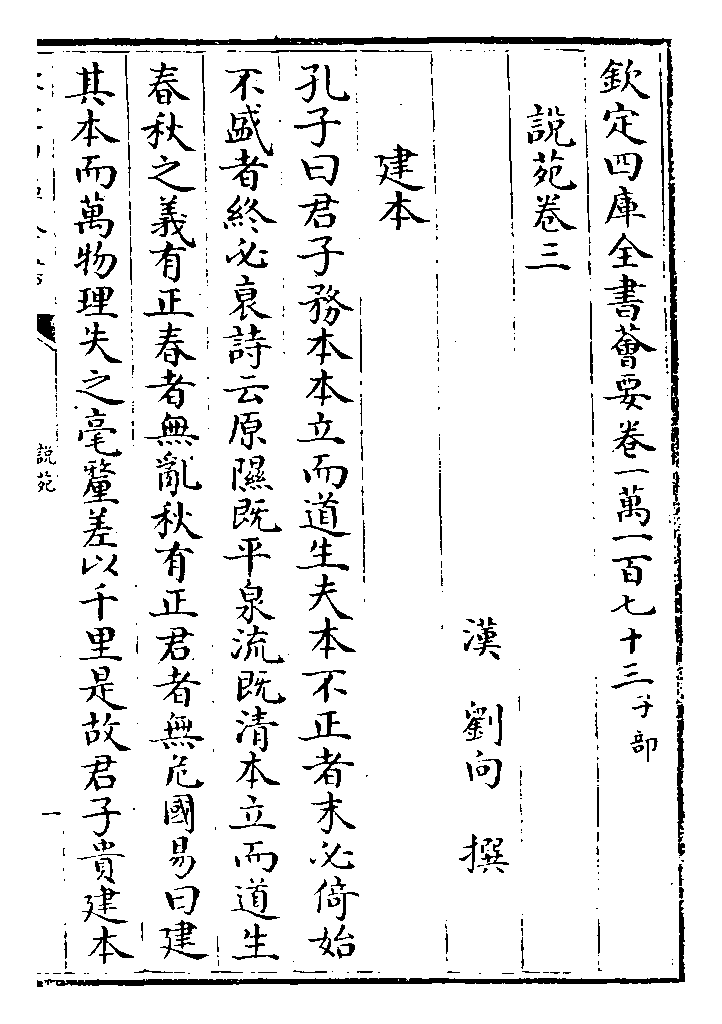 欽定四庫全書薈要卷一萬一百七十三子部
說苑卷三
漢 劉向 撰
建本
孔子曰君子務本本立而道生夫本不正者末必倚始
不盛者終必衰詩云原隰既平泉流既清本立而道生
春秋之義有正春者無亂秋有正君者無危國易曰建
其本而萬物理失之毫釐差以千里是故君子貴建本
說苑
一